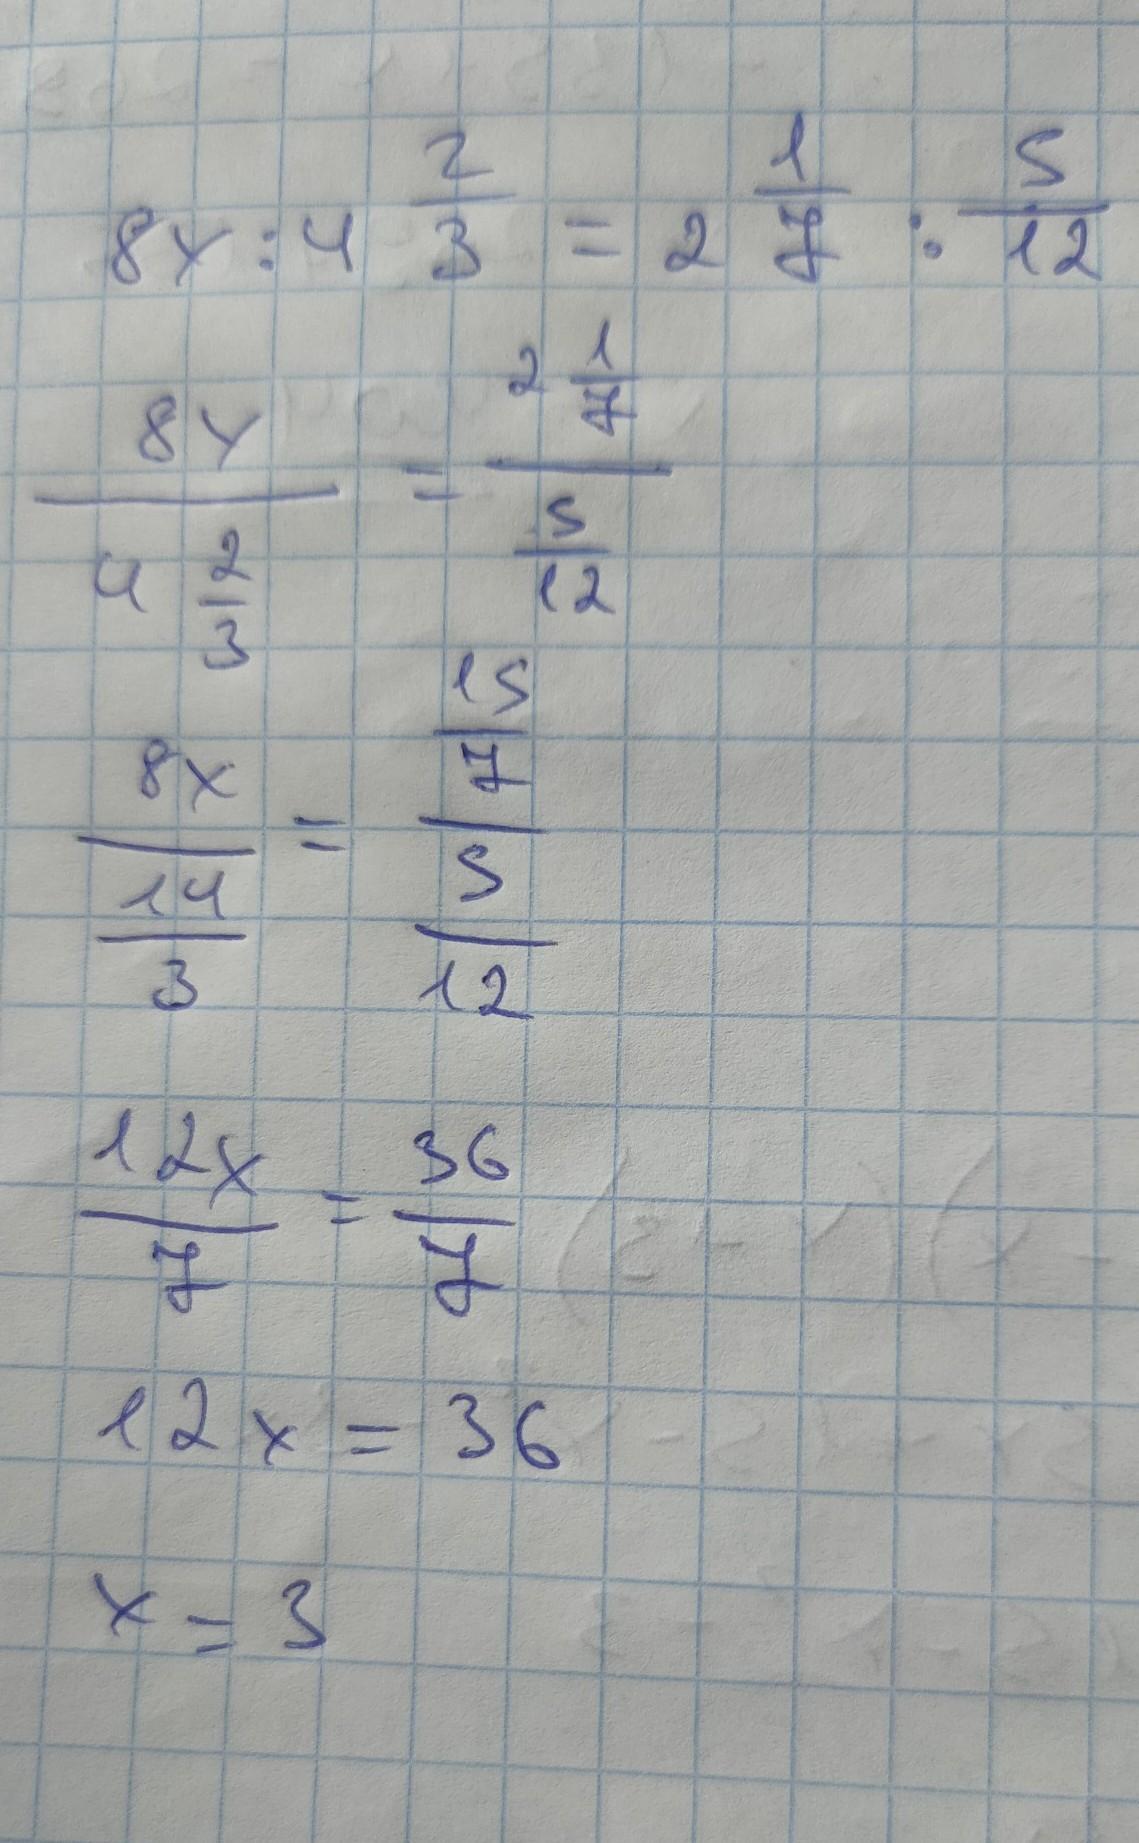 8x : 4 2/3 = 2 1/7 : 5/12
8x / 4 2/3 = 2 1/7 / 5/12
8x / 14/3 = 15/7 / 5/12
12x/7 = 36/7
12x = 36
x = 3